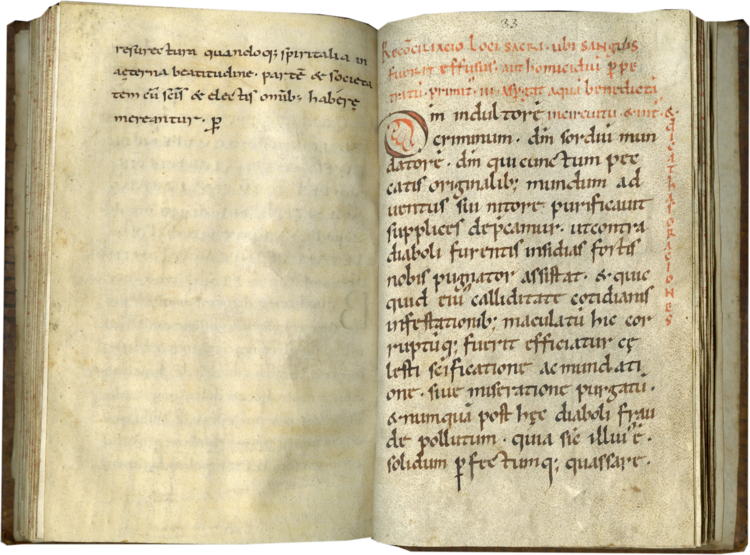 resurrectura quandoq; spiritalia in
aeterna beatitudine. partē & societa
tem cū scīs & electis omīb; habere
mereantur. ꝑ
33
Reconciliacio loci sacri. ubi sanguis
fuerit effusus. aut homicidiū ꝑpe
tratū. primū
aspgat aqua benedicta
in circuitu & int̄ &
dicat has oraciones
Dm̄ indultorē
criminum. dm̄ sordiū mun
datorē. dm̄ qui cunctum pec
catis originalib; mundum ad
ventus sui nitore purificavit
supplices dep̄camur. ut contra
diaboli furentis insidias fortis
nobis pugnator assistat. & quic
quid eiꝰ calliditate cotidianis
infestationib; maculatū hic cor
ruptūq; fuerit efficiatur cę
lesti scīficatione ac mundati
one. sive miseratione purgatū.
& nunquā post hęc diaboli frau
de pollutum. quia sic illiꝰ ē.
solidum ꝑfectumq; quassare.